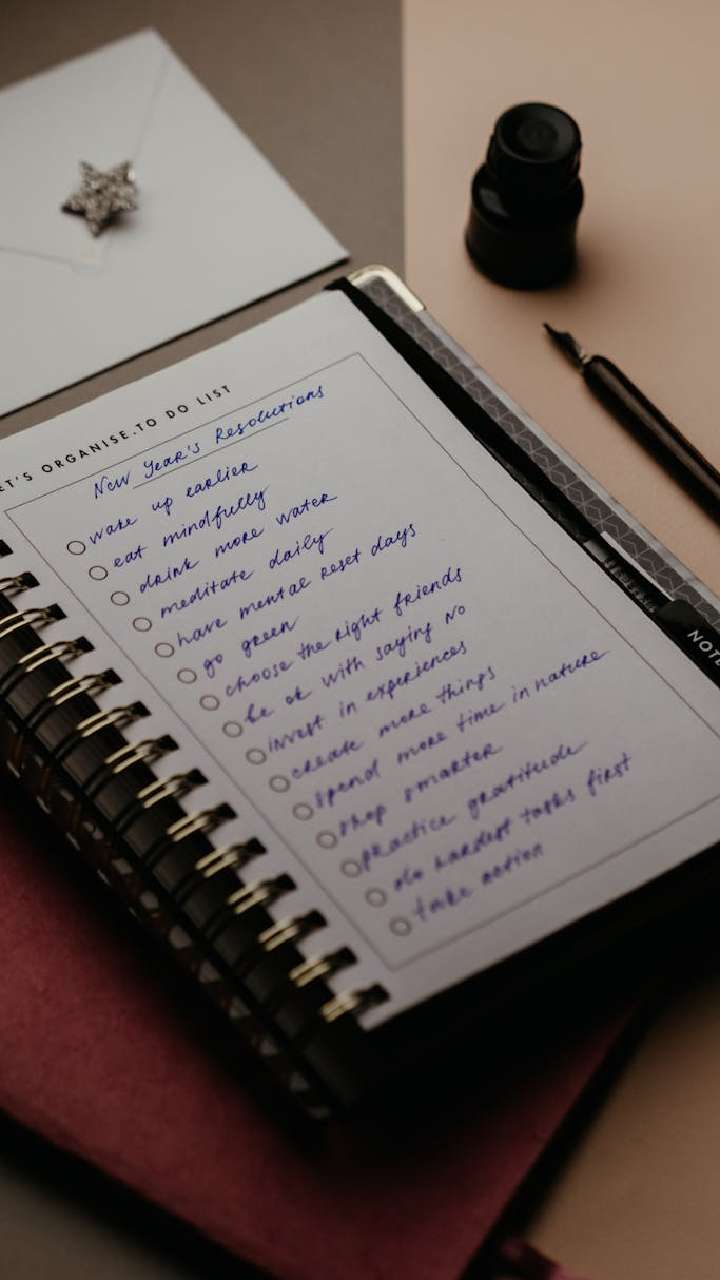 ET'S ORGANISE.TO DO LIST
New Year's Resolutions
wake up earlier
eat mindfully
drink more water
meditate daily
have mental reset days
go green
choose the right friends
be ok with saying no
invest in experiences
create more things
spend more time in nature
shop smarter
practice gratitude
do hardest tasks first
take action
NOTE